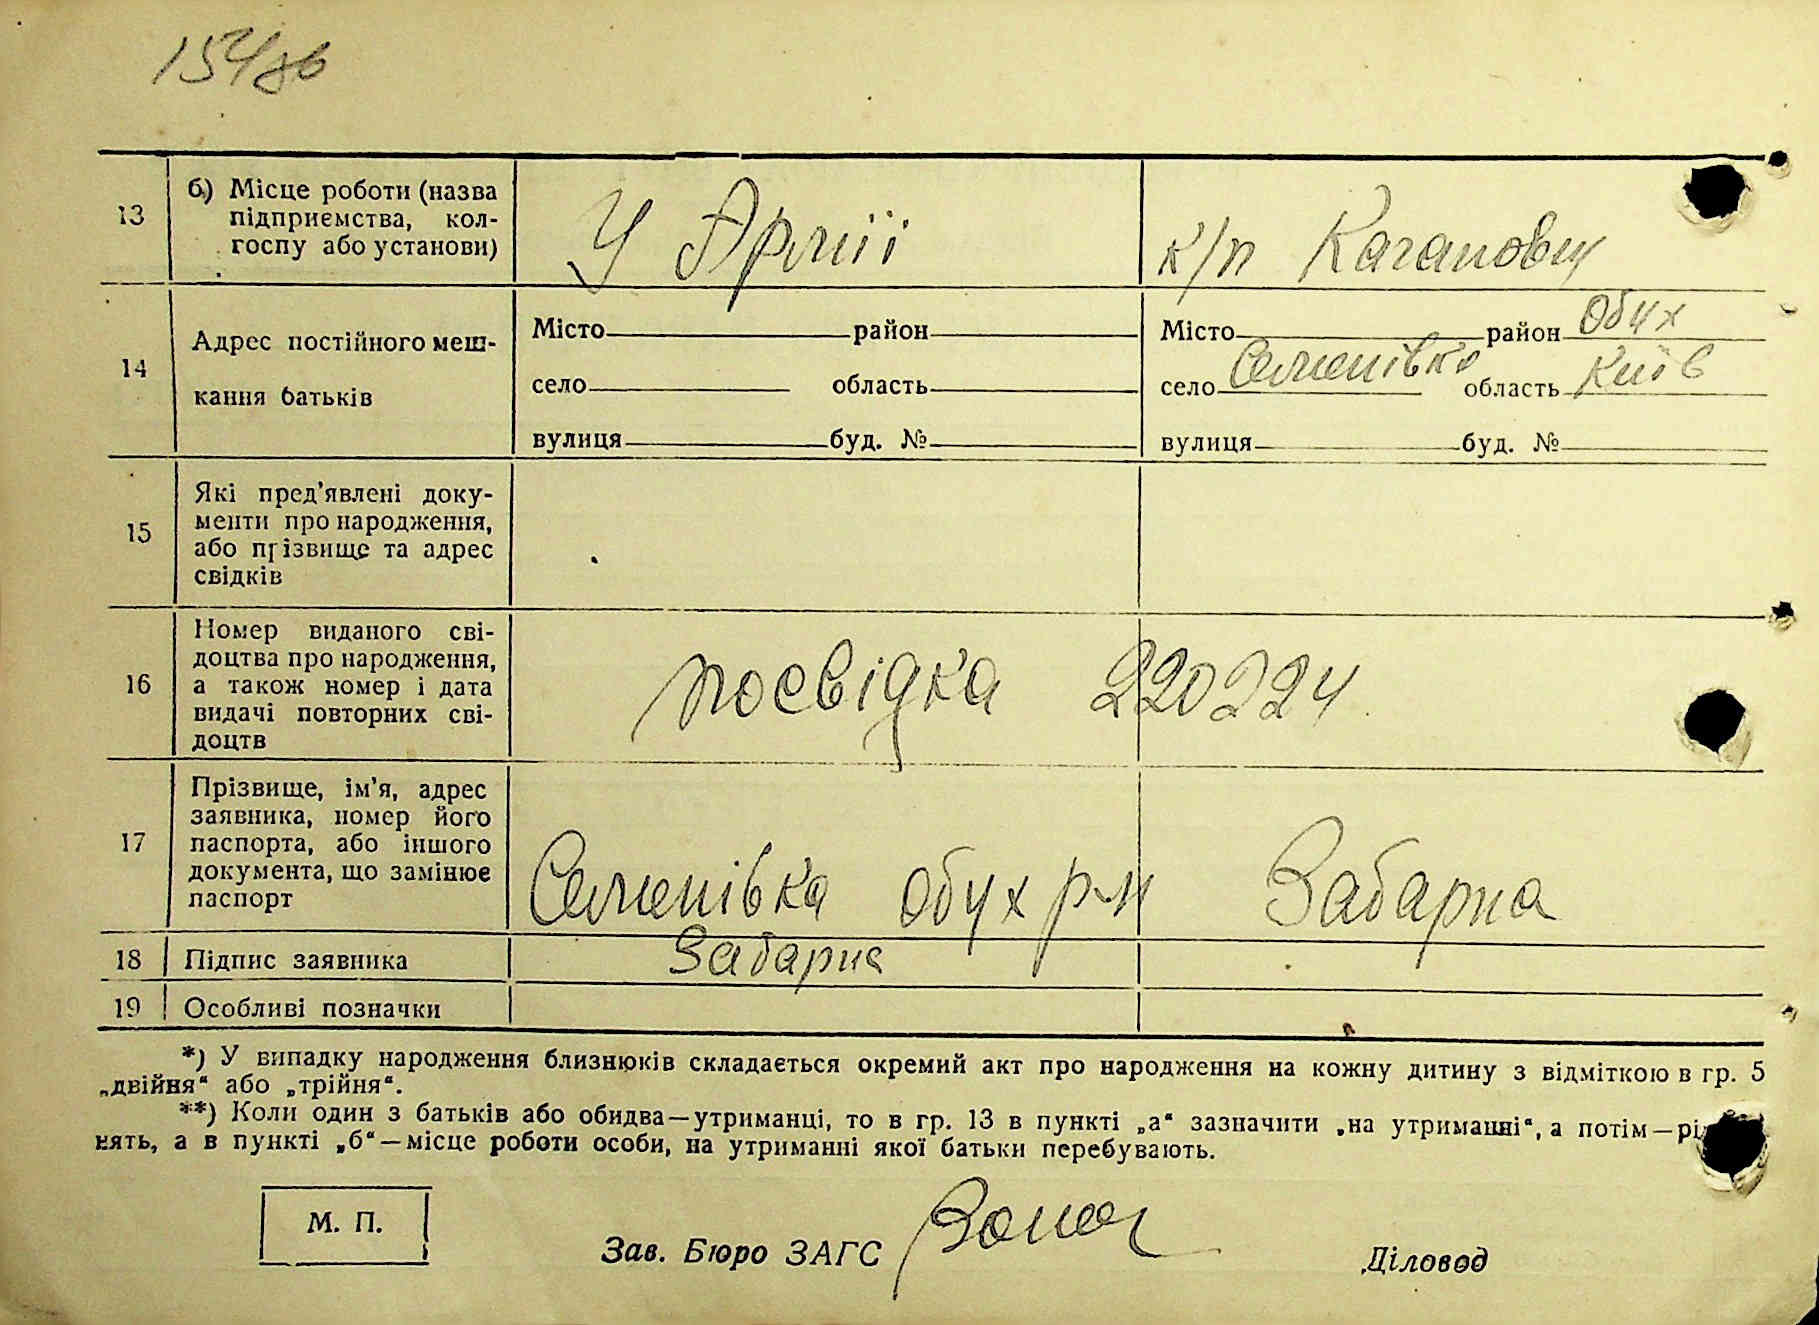 154зв
13
б) Місце роботи (назва
підприємства, кол-
госпу або установи)
У Армії
к/п Каганович
14
Адрес постійного меш-
кання батьків
Місто район
село область
вулиця буд. №
Місто район Обух
село Семенівка область Київ
вулиця буд. №
15
Які пред'явлені доку-
менти про народження,
або прізвище та адрес
свідків
16
Номер виданого сві-
доцтва про народження,
а також номер і дата
видачі повторних сві-
доцтв
посвідка 220224
17
Прізвище, ім'я, адрес
заявника, номер його
паспорта, або іншого
документа, що замінює
паспорт
Семенівка Обух р-н Забарна
18 Підпис заявника Забарна
19 Особливі позначки
*) У випадку народження близнюків складається окремий акт про народження на кожну дитину з відміткою в гр. 5
„двійня“ або „трійня“.
**) Коли один з батьків або обидва—утриманці, то в гр. 13 в пункті „а“ зазначити „на утриманні“, а потім—рі
нять, а в пункті „б“—місце роботи особи, на утриманні якої батьки перебувають.
М. П.
Зав. Бюро ЗАГС
Діловод